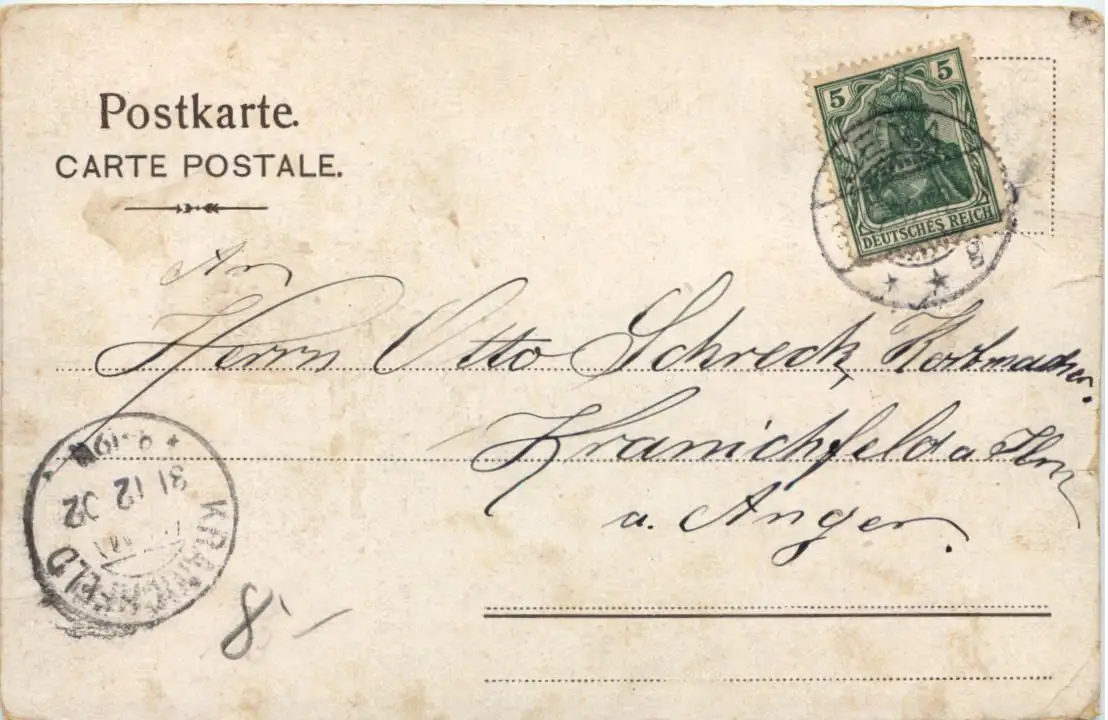 Postkarte.
CARTE POSTALE.
5 5
DEUTSCHES REICH
An
Herrn Otto Schreck, Korbmacher.
Kranichfeld a Ilm
a. Anger.
KRANICHFELD
31 12 02
8,-